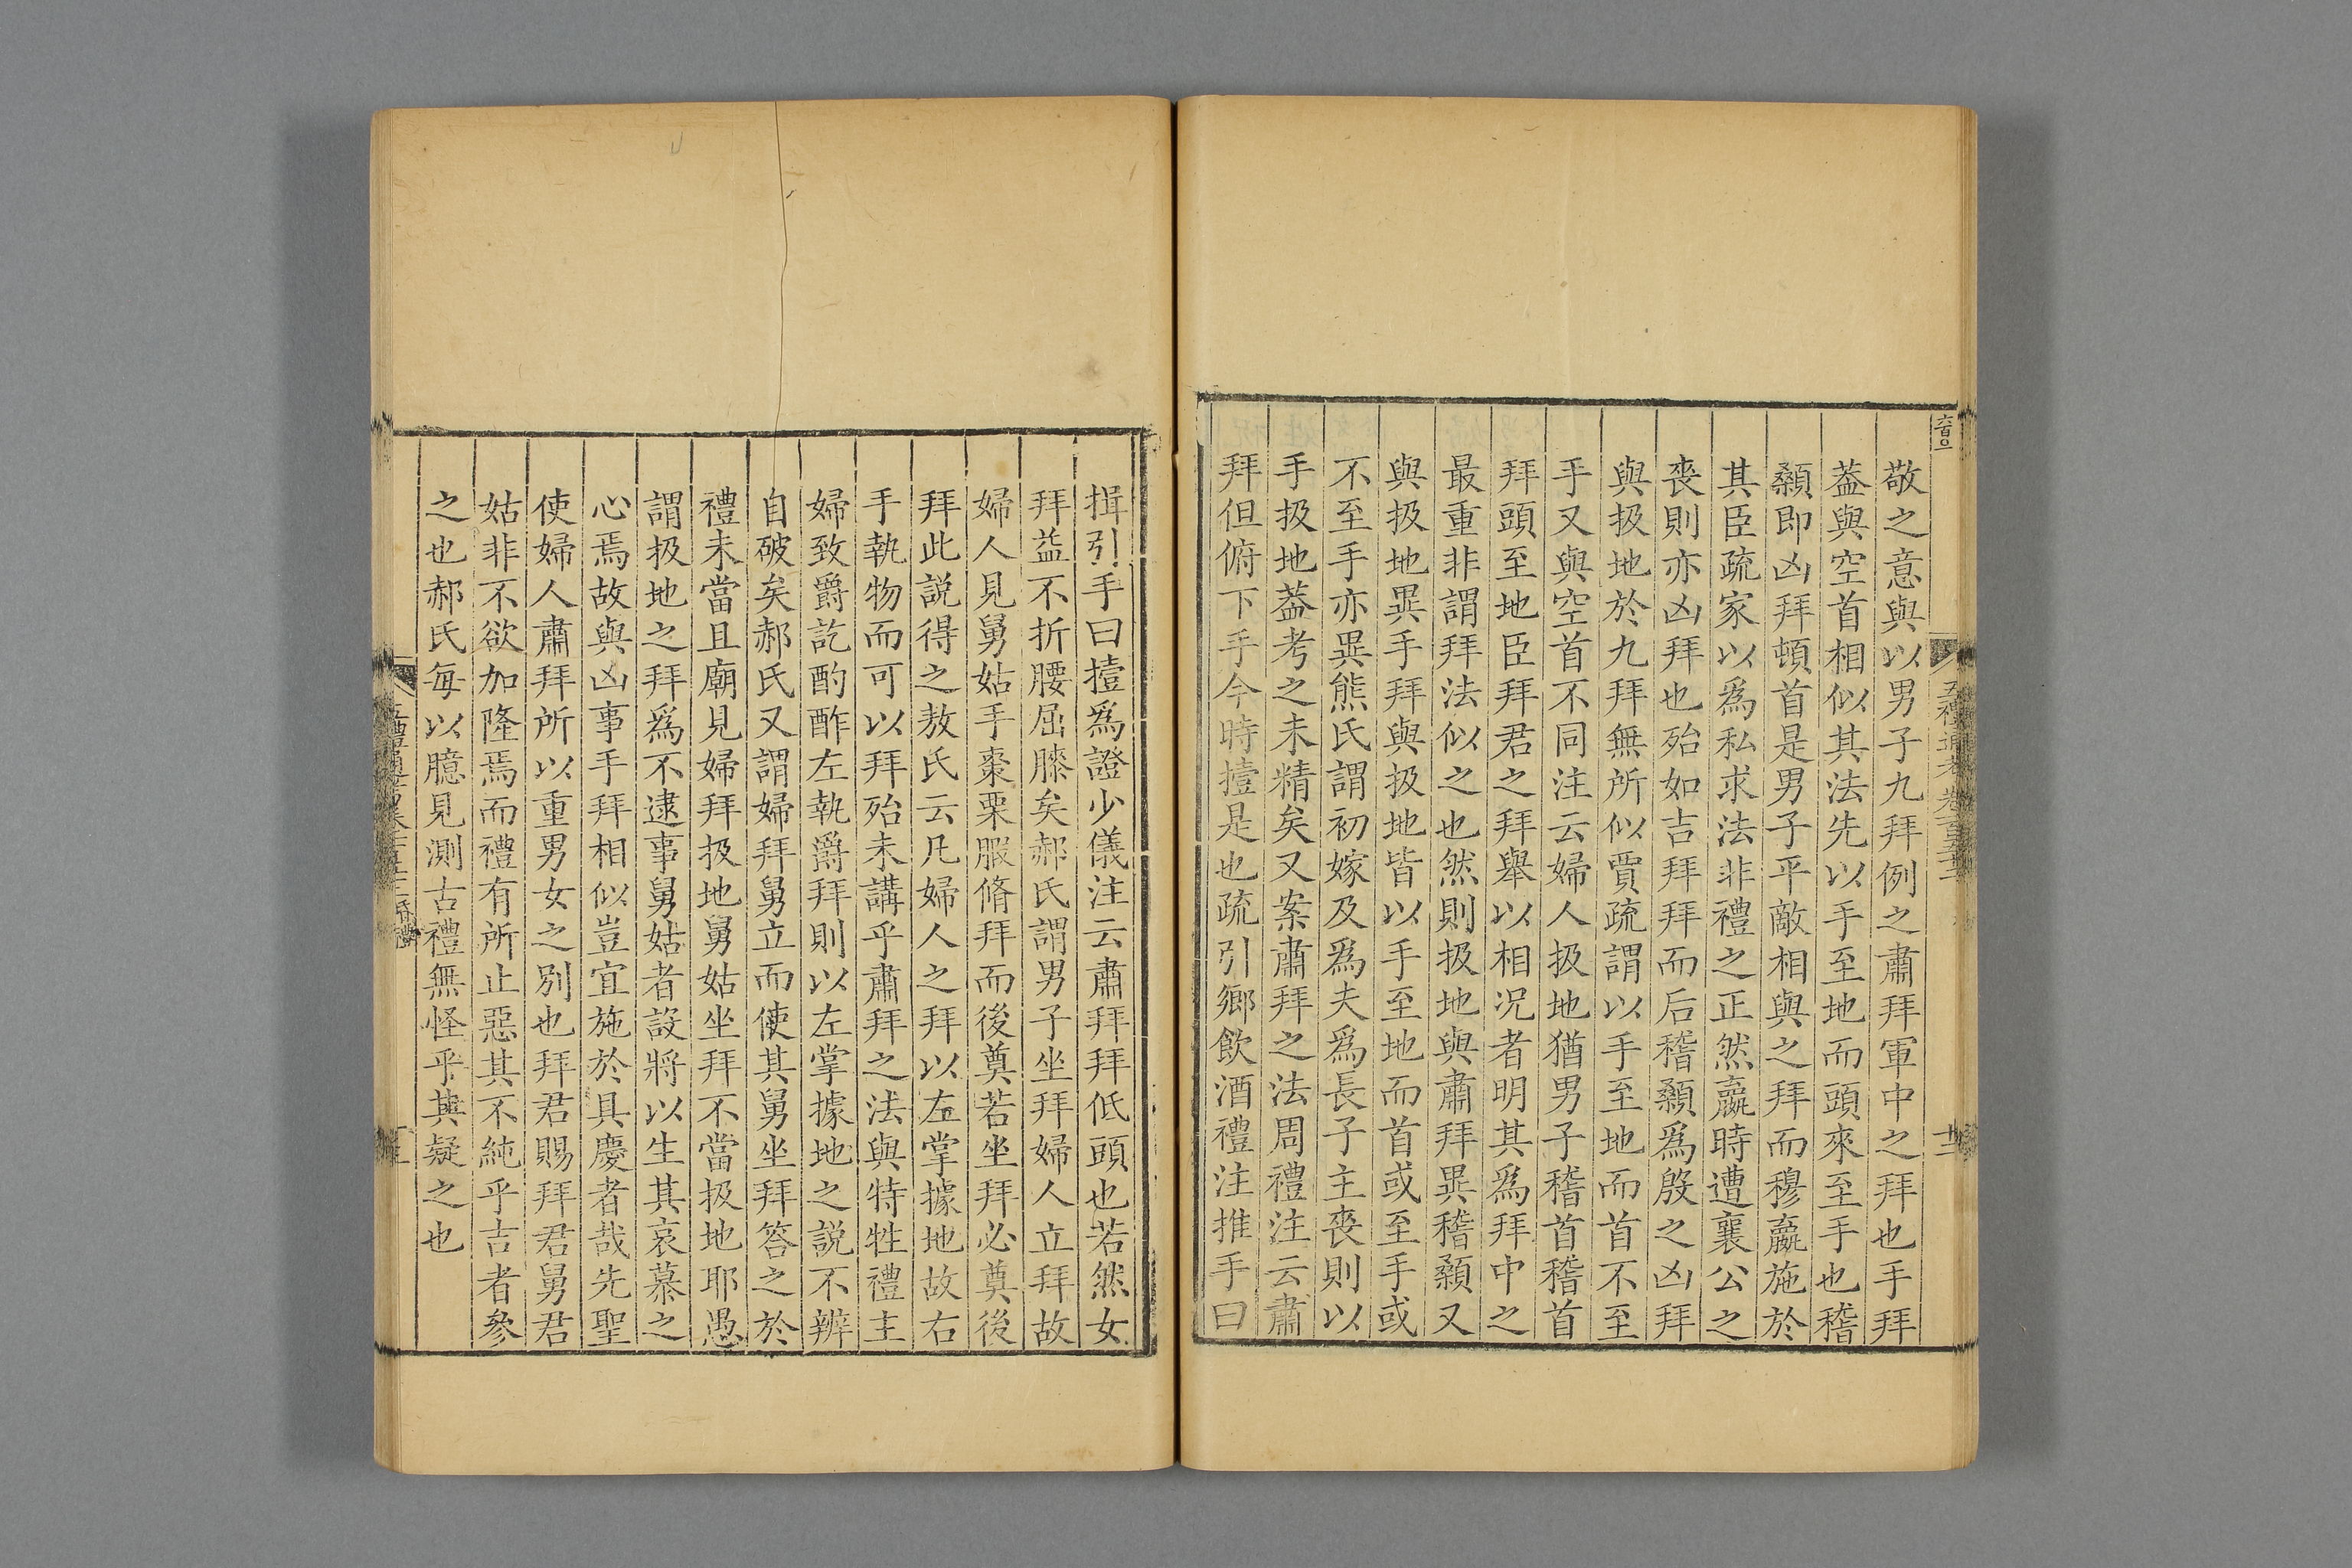 敬之意與以男子九拜例之肅拜軍中之拜也手拜
葢與空首相似其法先以手至地而頭來至手也稽
顙即凶拜頓首是男子平敵相與之拜而穆嬴施於
其臣疏家以爲私求法非禮之正然嬴時遭襄公之
喪則亦凶拜也殆如吉拜拜而后稽顙爲殷之凶拜
與扱地於九拜無所似賈疏謂以手至地而首不至
手又與空首不同注云婦人扱地猶男子稽首稽首
拜頭至地臣拜君之拜舉以相况者明其爲拜中之
最重非謂拜法似之也然則扱地與肅拜異稽顙又
與扱地異手拜與扱地皆以手至地而首或至手或
不至手亦異熊氏謂初嫁及爲夫爲長子主喪則以
手扱地葢考之未精矣又案肅拜之法周禮注云肅
拜但俯下手今時撎是也疏引鄉飲酒禮注推手曰
揖引手曰撎爲證少儀注云肅拜拜低頭也若然女
拜益不折腰屈膝矣郝氏謂男子坐拜婦人立拜故
婦人見舅姑手棗栗腶脩拜而後奠若坐拜必奠後
拜此説得之敖氏云凡婦人之拜以左掌據地故右
手執物而可以拜殆未講乎肅拜之法與特牲禮主
婦致爵訖酌酢左執爵拜則以左掌據地之説不辨
自破矣郝氏又謂婦拜舅立而使其舅坐拜答之於
禮未當且廟見婦拜扱地舅姑坐拜不當扱地耶愚
謂扱地之拜爲不逮事舅姑者設將以生其哀慕之
心焉故與凶事手拜相似豈宜施於具慶者哉先聖
使婦人肅拜所以重男女之別也拜君賜拜君舅君
姑非不欲加隆焉而禮有所止惡其不純乎吉者參
之也郝氏每以臆見測古禮無怪乎其疑之也